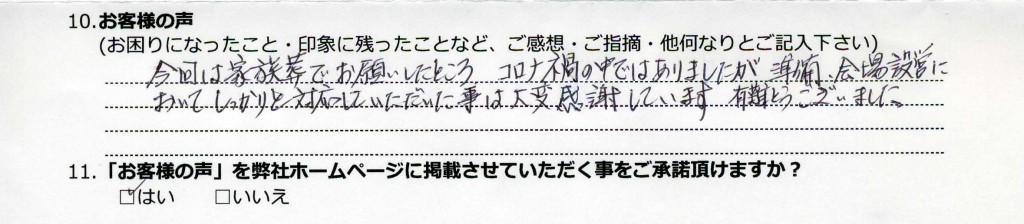 10.お客様の声
(お困りになったこと・印象に残ったことなど、ご感想・ご指摘・他何なりとご記入下さい)
今回は家族葬でお願いしたところ コロナ禍の中ではありましたが 準備、会場設営に
おいてしっかりと対応していただいた事は大変感謝しています 有難とうございました。
11.「お客様の声」を弊社ホームページに掲載させていただく事をご承諾頂けますか？
☑はい □いいえ